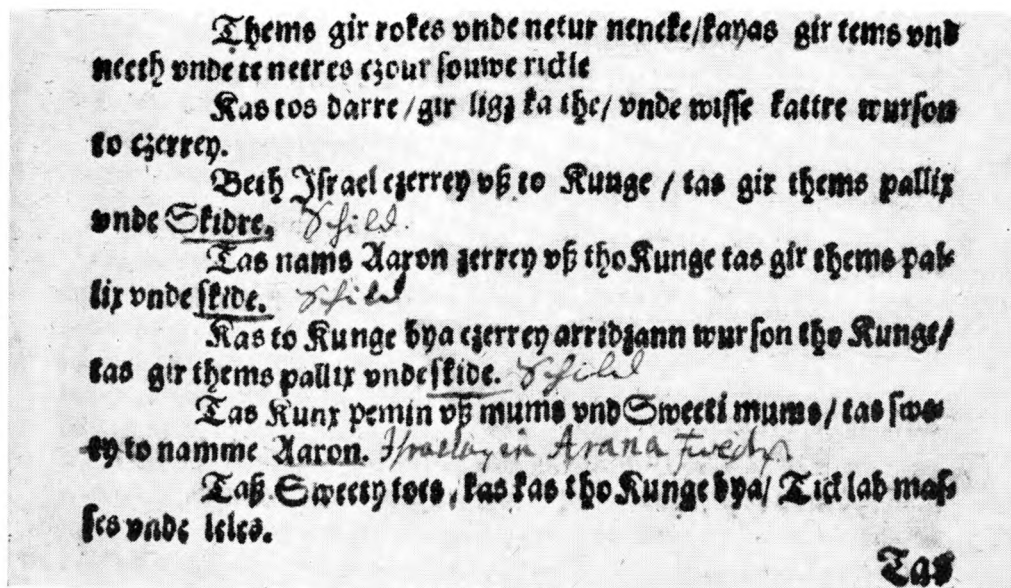 Thems gir rokes vnde netur neneke/kayas gir tems vnd
neeth vnde te neeres czour souwe rickle
Kas tos darre/gir ligz ka the/ vnde wisse kattre wurson
to czerrey.
Beth Israel czerrey vß to Kunge / tas gir thems pallix
vnde Skidre. Schild.
Tas nams Aaron zerrey vß tho Kunge tas gir thems pal-
lix vnde skide. Schild
Kas to Kunge bya czerrey arridzann wurson tho Kunge/
tas gir thems pallix vnde skide. Schild
Tas Kunx pemin vß mums vnd Sweeti mums/ tas swe-
ty to namme Aaron. Arana
Taß Sweety tots, kas kas tho Kunge bya/ Tick lab mas-
ses vnde leles.
Tas